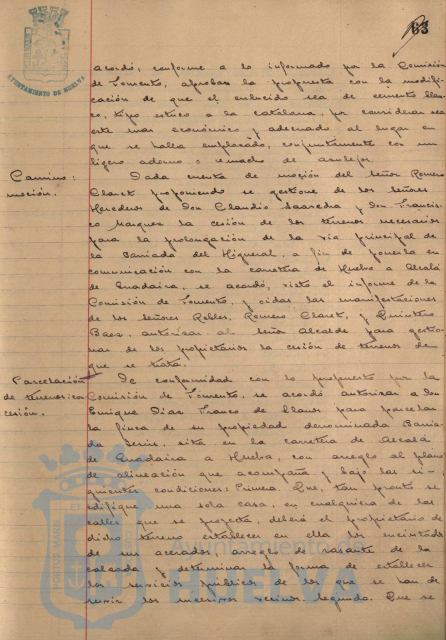 63
AYUNTAMIENTO DE HUELVA
acordó, conforme a lo informado por la Comisión
de Fomento, aprobar la propuesta con la modifi-
cación de que el enlucido sea de cemento blan-
co, tipo estuco a la catalana, por considerar sea
este mas económico y adecuado al lugar en
que se halla emplazado, conjuntamente con un
ligero adorno o remache de azulejos.
Camino:
moción.
Dada cuenta de moción del señor Romero
Claret proponiendo se gestione de los señores
Herederos de Don Claudio Saavedra y Don Francis-
co Marquez la cesión de los terrenos necesarios
para la prolongación de la via principal de
la Barriada del Higueral, a fin de ponerla en
comunicación con la carretera de Huelva a Alcalá
de Guadaira, se acordó, visto el informe de la
Comisión de Fomento, y oidas las manifestaciones
de los señores Robles, Romero Claret, y Quintero
Baez, autorizar al señor Alcalde para gestio-
nar de los propietarios la cesión de terrenos de
que se trata.
Parcelación
de terrenos: con
cesión.
De conformidad con lo propuesto por la
Comisión de Fomento, se acordó autorizar a Don
Enrique Diaz Franco de Llanos para parcelar
la finca de su propiedad denominada Barria-
da sita en la carretera de Alcalá
de Guadaira a Huelva, con arreglo al plano
de alineación que acompaña y bajo las si-
guientes condiciones: Primera. Que, tan pronto se
edifique una sola casa, en cualquiera de las
calles que se proyecta, deberá el propietario de
dicho terreno establecer en ella los encintados
de sus acerados, arreglo de rasante de la
calzada y determinar la forma de establecer
los servicios públicos de los que se han de
servir los inquilinos vecinos. Segunda. Que se
Ayuntamiento de
HUELVA